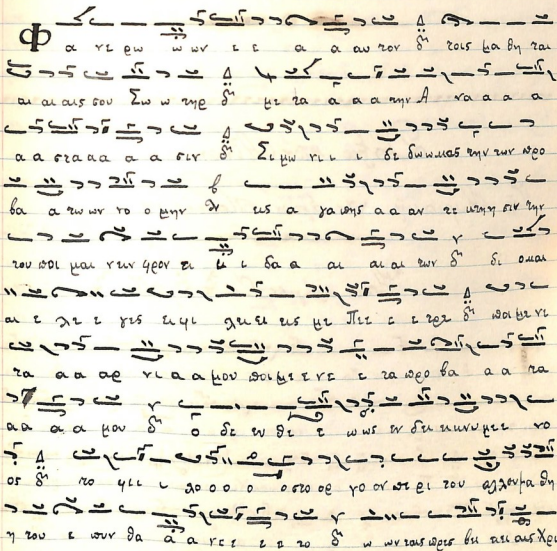 Φ α νε ρω ω ων ε ε α α αυ τον δι τοις μα θη ται
αι αι αις σου Σω ω τηρ δι με τα α α α την Α να α α α
α α στα α α α α σιν δι Σι μω νι ι ι δε δω ω μας την των προ
βα α τω ων νο ο μην εις α γα πης α α αν τε κτη η σιν την
του ποι μαι νειν φρον τι ι ι δα α αι αι αι των δι δι ο και
αι ε λε ε γες ει φι λει ει εις με Πε ε ε ε τρε δι ποι μαι νε
τα α α αρ νι α α μου ποι με ε νε ε τα προ βα α α τα
α α α α μου δι ο δε ευ θε ε ε ως εν δει κνυ με νο
ος δι το φι ι ι λο ο ο ο ο στο ορ γο ον πε ρι του αλ λου μα θη
η του ε πυν θα α α νε ε ε ε το δι ω ων ταις πρε σβει αι αις Χρι